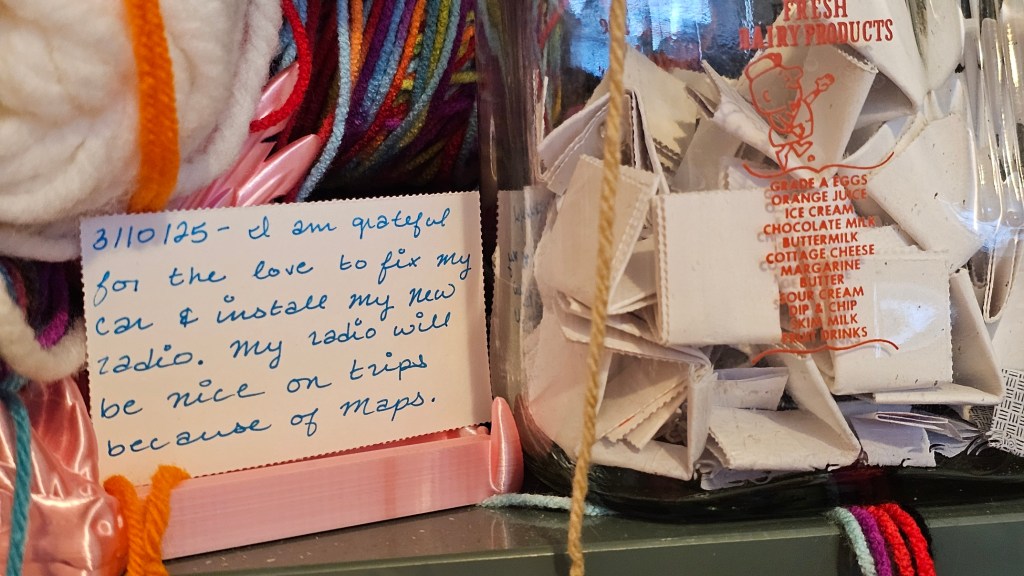 3/10/25 - I am grateful
for the love to fix my
car & install my new
radio. My radio will
be nice on trips
because of maps.
FRESH
DAIRY PRODUCTS
GRADE A EGGS
ORANGE JUICE
ICE CREAM
CHOCOLATE MILK
BUTTERMILK
COTTAGE CHEESE
MARGARINE
BUTTER
SOUR CREAM
DIP & CHIP
SKIM MILK
FRUIT DRINKS